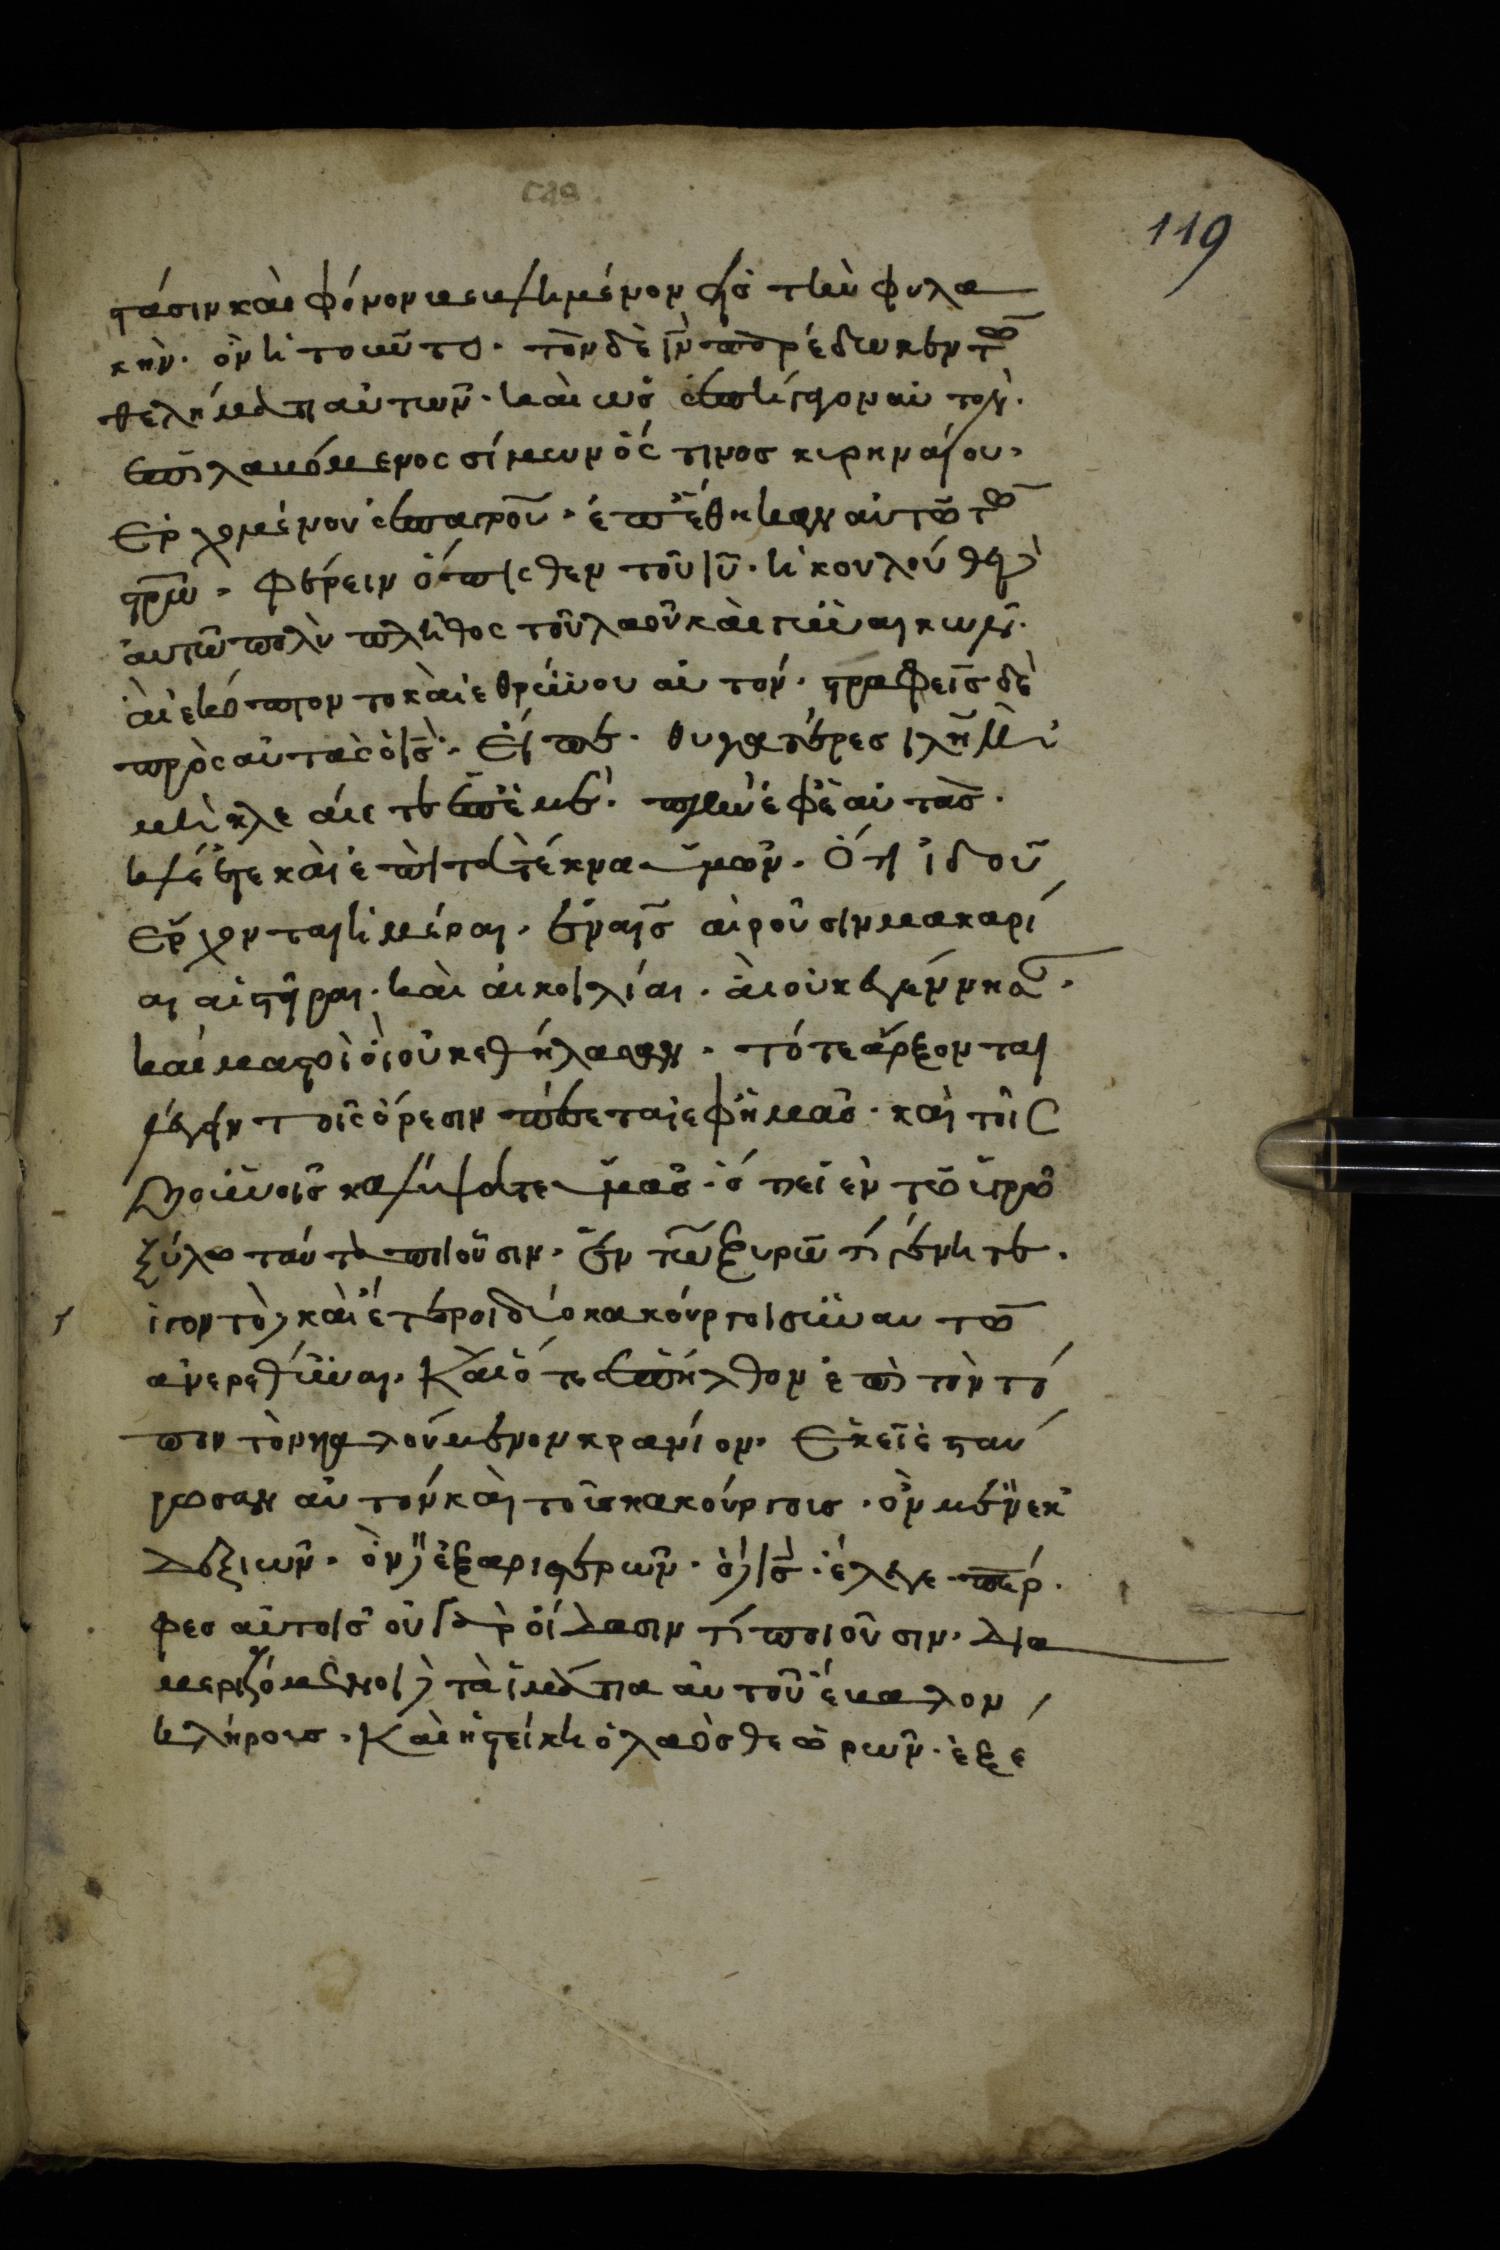 119
στάσιν καὶ φόνον βεβλημένον εἰς τὴν φυλα
κὴν. ὃν ἠτοῦντο. τὸν δὲ ἰν παρέδωκεν τῶ
θελήματι αὐτῶν. καὶ ὡς ἀπήγαγον αὐτον.
ἐπιλαβόμενος σίμωνός τινος κυρηναίου.
ἐρχομένου ἀπαγροῦ. ἐπέθηκαν αὐτῶ τῶ
στρω. φέρειν ὄπισθεν τοῦ ιυ. ἠκουλούθει δὲ
αὐτῶ πολὺ πλῆθος τοῦ λαοῦ καὶ γυναικῶν.
αἳ ἐκόπτοντο καὶ ἐθρήνουν αὐτόν. στραφεὶς δὲ
πρὸς αὐτὰς ὁ ις. εἶπε. θυγατέρες ιλημ
μὴ κλαίετε ἐπεμέ. πλὴν ἐφεαυτὰς
κλαίετε καὶ ἐπὶ τὰ τέκνα ὑμῶν. ὅτι ἰδοῦ
ἔρχονται ἡμέραι. ἐν αἷς αἰροῦσιν μακαρί
αι αἱ στεῖραι. καὶ αἱ κοιλίαι. αἳ οὐκ ἐγέννησαν.
καὶ μαστοὶ οἳ οὐκ ἐθήλασαν. τότε ἄρξονται
λέγειν τοῖς ὄρεσιν πέσεται ἐφημᾶς. καὶ τοῖς
βουνοῖς καλύψατε ὑμᾶς. ὅτι εἰ ἐν τῶ ὑγρῶ
ξύλω ταῦτα ποιοῦσιν. ἐν τῶ ξυρῶ τί γένηται.
ἤγοντο δὲ καὶ ἕτεροι δύο κακοῦργοι σὺν αὐτῶ
ἀνερεθῆναι. καὶ ὅτε ἐπῆλθον ἐπὶ τὸν τό
πον τὸν καλούμενον κρανίον. ἐκεῖ ἐσταύ
ρωσαν αὐτὸν καὶ τοὺς κακούργους. ὃν μὲν ἐκ
δεξιῶν. ὃν δὲ ἐξαριστερῶν. ὁ δὲ ις. ἔλεγε περ.
φες αὐτοῖς οὐ γὰρ οἴδασιν τί ποιοῦσιν. δια
μεριζόμενοι δὲ τὰ ἱμάτια αὐτοῦ ἔβαλον
κλήρους. καὶ ἡστείκη ὁ λαὸς θεωρῶν. ἐξε